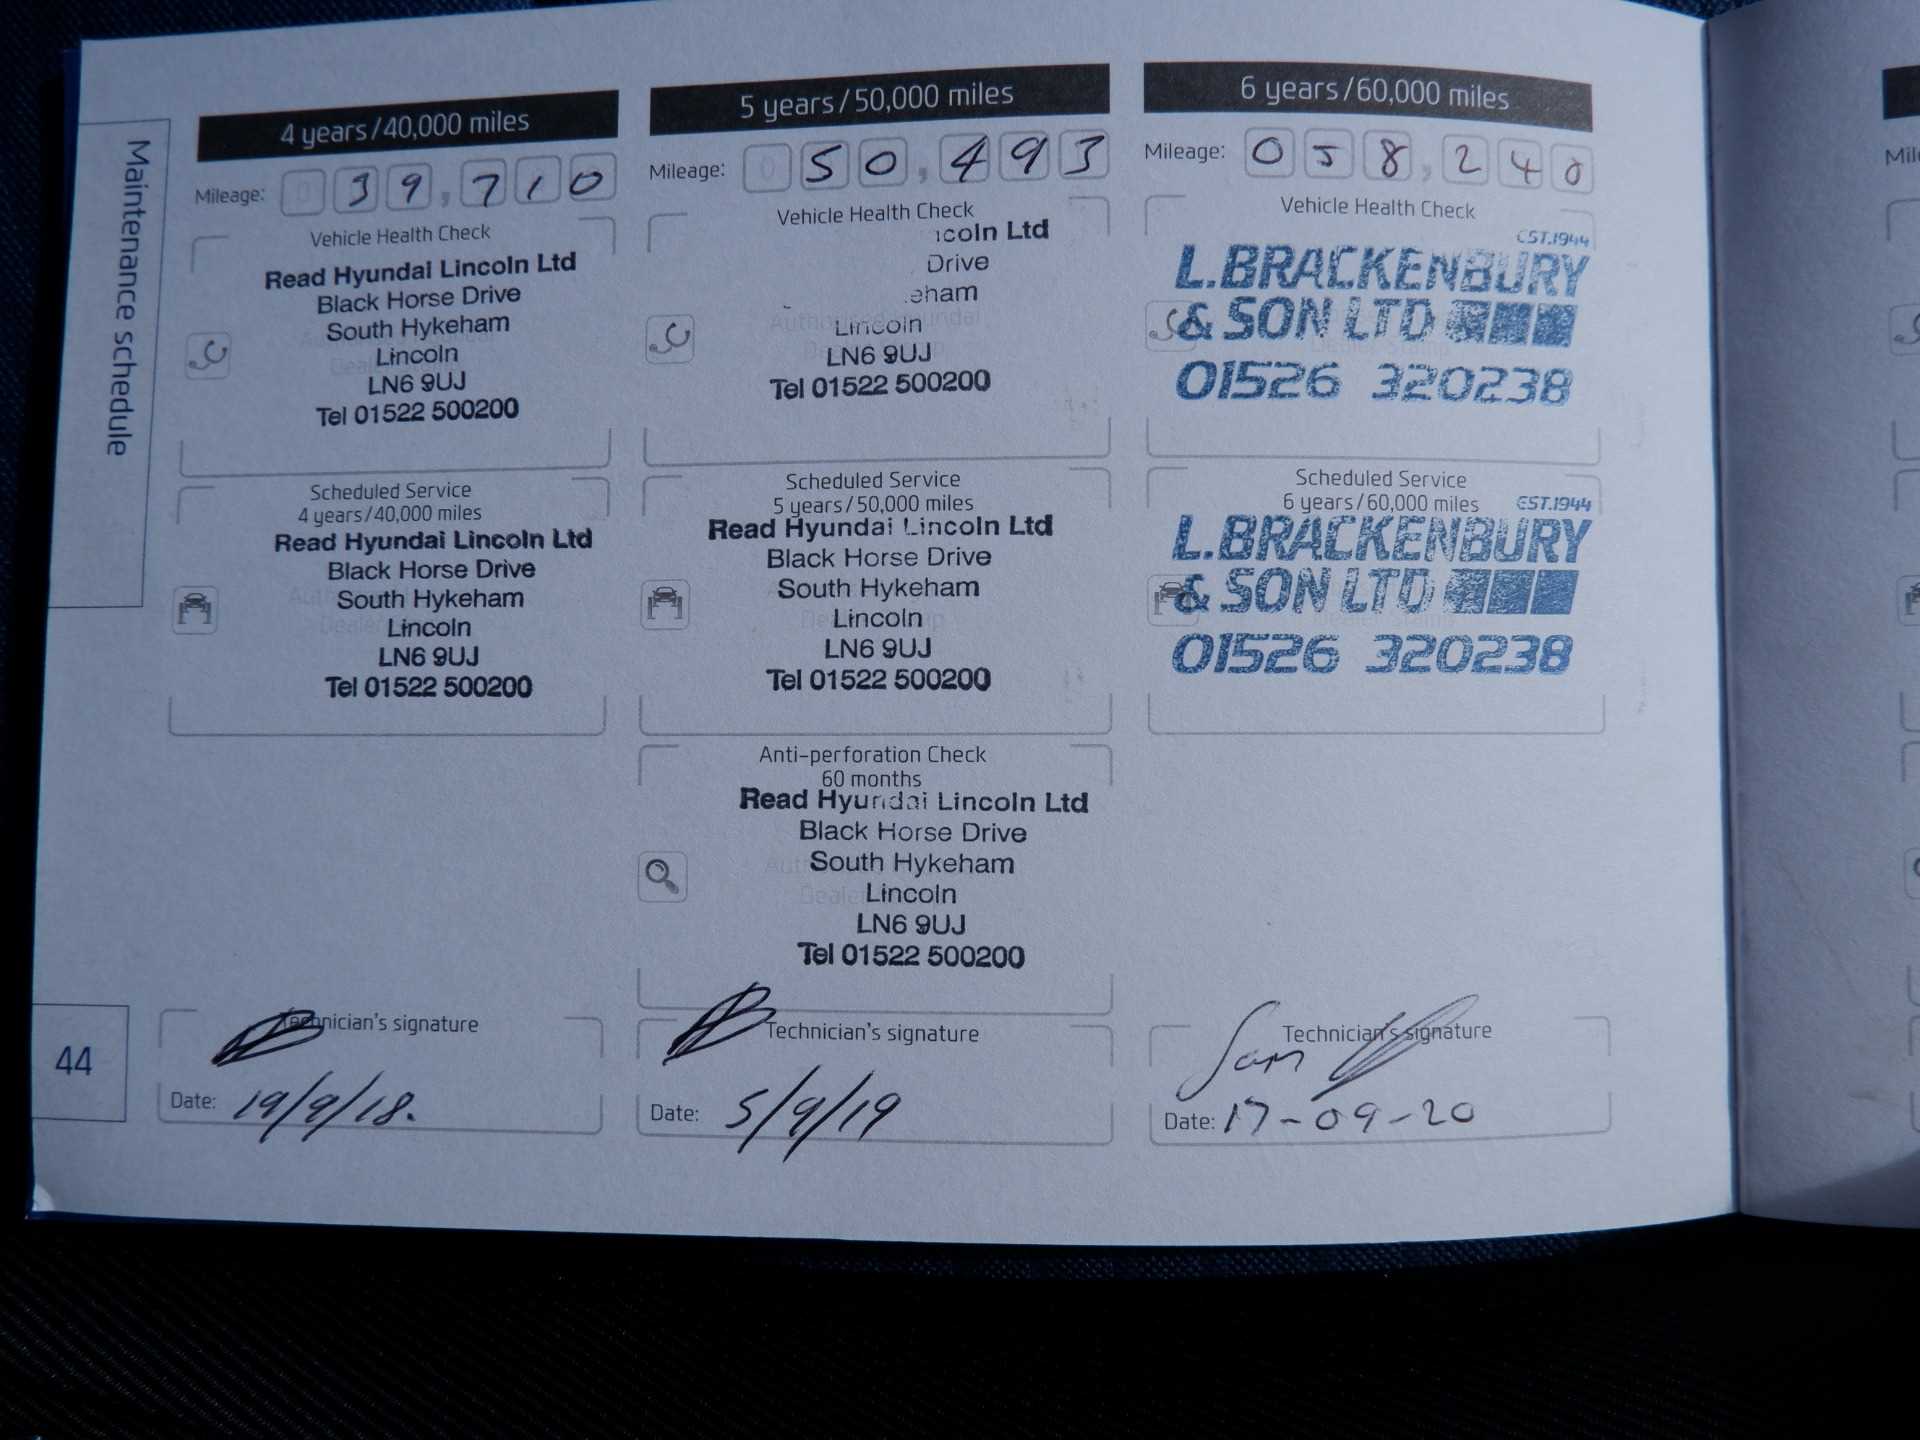 Maintenance schedule
4 years/40,000 miles
Mileage: 039,710
Vehicle Health Check
Read Hyundai Lincoln Ltd
Black Horse Drive
South Hykeham
Lincoln
LN6 9UJ
Tel 01522 500200
Scheduled Service
4 years/40,000 miles
Read Hyundai Lincoln Ltd
Black Horse Drive
South Hykeham
Lincoln
LN6 9UJ
Tel 01522 500200
Technician's signature
Date: 19/9/18.
5 years/50,000 miles
Mileage: 050,493
Vehicle Health Check
coln Ltd
Drive
eham
Authorised Hyundai
Lincoln
LN6 9UJ
Tel 01522 500200
Scheduled Service
5 years/50,000 miles
Read Hyundai Lincoln Ltd
Black Horse Drive
South Hykeham
Lincoln
LN6 9UJ
Tel 01522 500200
Anti-perforation Check
60 months
Read Hyundai Lincoln Ltd
Black Horse Drive
South Hykeham
Lincoln
LN6 9UJ
Tel 01522 500200
Technician's signature
Date: 5/9/19
6 years/60,000 miles
Mileage: 058,240
Vehicle Health Check
EST.1944
L.BRACKENBURY
& SON LTD
Dealer Stamp
01526 320238
Scheduled Service
6 years/60,000 miles
EST.1944
L.BRACKENBURY
& SON LTD
Dealer Stamp
01526 320238
Technician's signature
Sam
Date: 17-09-20
44
Mil